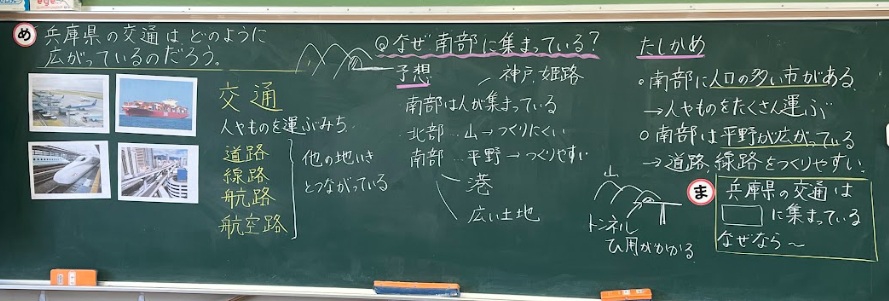 め
兵庫県の交通は どのように
広がっているのだろう。
交通
人やものを運ぶみち
道路
線路
航路
航空路
他の地いき
とつながっている
Qなぜ南部に集まっている?
予想
神戸、姫路
南部は人が集まっている
北部…山→つくりにくい
南部…平野→つくりやすい
港
広い土地
たしかめ
○南部に人口の多い市がある
→人やものをたくさん運ぶ
○南部は平野が広がっている
→道路、線路をつくりやすい
山
トンネル
ひ用がかかる
ま
兵庫県の交通は
に集まっている
なぜなら〜